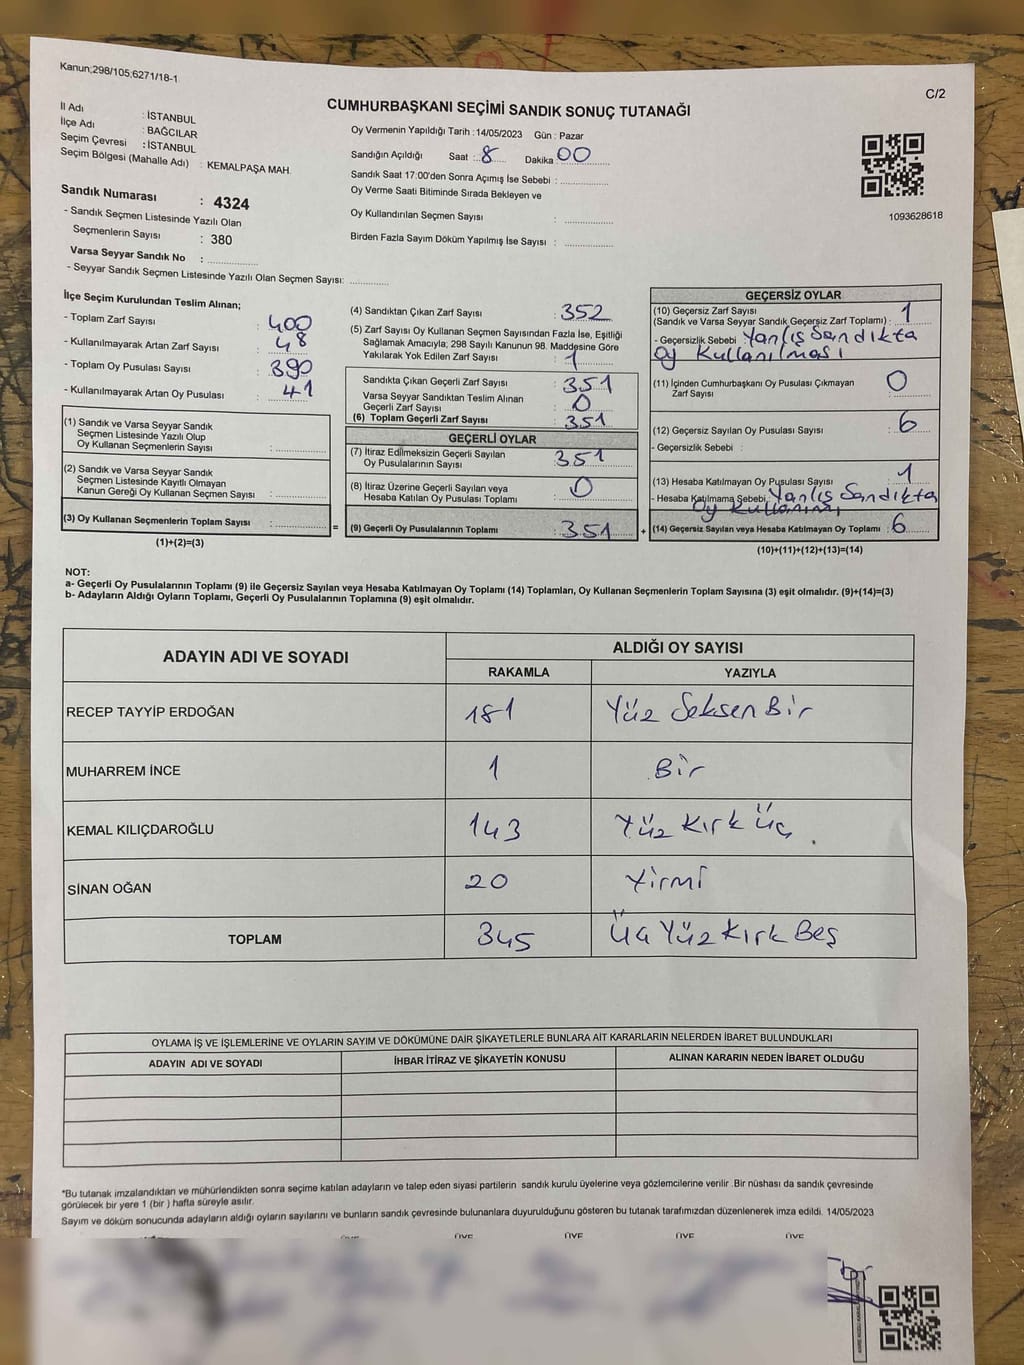 Kanun;298/105;6271/18-1
C/2
CUMHURBAŞKANI SEÇİMİ SANDIK SONUÇ TUTANAĞI
İl Adı : İSTANBUL
İlçe Adı : BAĞCILAR
Seçim Çevresi : İSTANBUL
Seçim Bölgesi (Mahalle Adı) : KEMALPAŞA MAH.
Sandık Numarası : 4324
- Sandık Seçmen Listesinde Yazılı Olan
Seçmenlerin Sayısı : 380
Varsa Seyyar Sandık No :
- Seyyar Sandık Seçmen Listesinde Yazılı Olan Seçmen Sayısı:
Oy Vermenin Yapıldığı Tarih : 14/05/2023 Gün : Pazar
Sandığın Açıldığı Saat : 8 Dakika : 00
Sandık Saat 17:00'den Sonra Açımış İse Sebebi :
Oy Verme Saati Bitiminde Sırada Bekleyen ve
Oy Kullandırılan Seçmen Sayısı :
Birden Fazla Sayım Döküm Yapılmış İse Sayısı :
1093628618
İlçe Seçim Kurulundan Teslim Alınan;
- Toplam Zarf Sayısı : 400
- Kullanılmayarak Artan Zarf Sayısı : 48
- Toplam Oy Pusulası Sayısı : 390
- Kullanılmayarak Artan Oy Pusulası : 41
(1) Sandık ve Varsa Seyyar Sandık
Seçmen Listesinde Yazılı Olup
Oy Kullanan Seçmenlerin Sayısı :
(2) Sandık ve Varsa Seyyar Sandık
Seçmen Listesinde Kayıtlı Olmayan
Kanun Gereği Oy Kullanan Seçmen Sayısı :
(3) Oy Kullanan Seçmenlerin Toplam Sayısı : =
(1)+(2)=(3)
(4) Sandıktan Çıkan Zarf Sayısı : 352
(5) Zarf Sayısı Oy Kullanan Seçmen Sayısından Fazla İse, Eşitliği
Sağlamak Amacıyla; 298 Sayılı Kanunun 98. Maddesine Göre
Yakılarak Yok Edilen Zarf Sayısı : 1
Sandıkta Çıkan Geçerli Zarf Sayısı : 351
Varsa Seyyar Sandıktan Teslim Alınan
Geçerli Zarf Sayısı : 0
(6) Toplam Geçerli Zarf Sayısı : 351
GEÇERLİ OYLAR
(7) İtiraz Edilmeksizin Geçerli Sayılan
Oy Pusulalarının Sayısı : 351
(8) İtiraz Üzerine Geçerli Sayılan veya
Hesaba Katılan Oy Pusulası Toplamı : 0
(9) Geçerli Oy Pusulalarının Toplamı : 351 +
GEÇERSİZ OYLAR
(10) Geçersiz Zarf Sayısı
(Sandık ve Varsa Seyyar Sandık Geçersiz Zarf Toplamı) : 1
- Geçersizlik Sebebi : Yanlış Sandıkta
Oy Kullanılması
(11) İçinden Cumhurbaşkanı Oy Pusulası Çıkmayan
Zarf Sayısı : 0
(12) Geçersiz Sayılan Oy Pusulası Sayısı : 6
- Geçersizlik Sebebi :
(13) Hesaba Katılmayan Oy Pusulası Sayısı : 1
- Hesaba Katılmama Sebebi : Yanlış Sandıkta
Oy Kullanımı
(14) Geçersiz Sayılan veya Hesaba Katılmayan Oy Toplamı : 6
(10)+(11)+(12)+(13)=(14)
NOT:
a- Geçerli Oy Pusulalarının Toplamı (9) ile Geçersiz Sayılan veya Hesaba Katılmayan Oy Toplamı (14) Toplamları, Oy Kullanan Seçmenlerin Toplam Sayısına (3) eşit olmalıdır. (9)+(14)=(3)
b- Adayların Aldığı Oyların Toplamı, Geçerli Oy Pusulalarının Toplamına (9) eşit olmalıdır.
ADAYIN ADI VE SOYADI
ALDIĞI OY SAYISI
RAKAMLA YAZIYLA
RECEP TAYYİP ERDOĞAN 181 Yüz Seksen Bir
MUHARREM İNCE 1 Bir
KEMAL KILIÇDAROĞLU 143 Yüz Kırk Üç
SİNAN OĞAN 20 Yirmi
TOPLAM 345 Üç Yüz Kırk Beş
OYLAMA İŞ VE İŞLEMLERİNE VE OYLARIN SAYIM VE DÖKÜMÜNE DAİR ŞİKAYETLERLE BUNLARA AİT KARARLARIN NELERDEN İBARET BULUNDUKLARI
ADAYIN ADI VE SOYADI İHBAR İTİRAZ VE ŞİKAYETİN KONUSU ALINAN KARARIN NEDEN İBARET OLDUĞU
*Bu tutanak imzalandıktan ve mühürlendikten sonra seçime katılan adayların ve talep eden siyasi partilerin sandık kurulu üyelerine veya gözlemcilerine verilir .Bir nüshası da sandık çevresinde
görülecek bir yere 1 (bir ) hafta süreyle asılır.
Sayım ve döküm sonucunda adayların aldığı oyların sayılarını ve bunların sandık çevresinde bulunanlara duyurulduğunu gösteren bu tutanak tarafımızdan düzenlenerek imza edildi. 14/05/2023
ÜYE ÜYE ÜYE ÜYE ÜYE